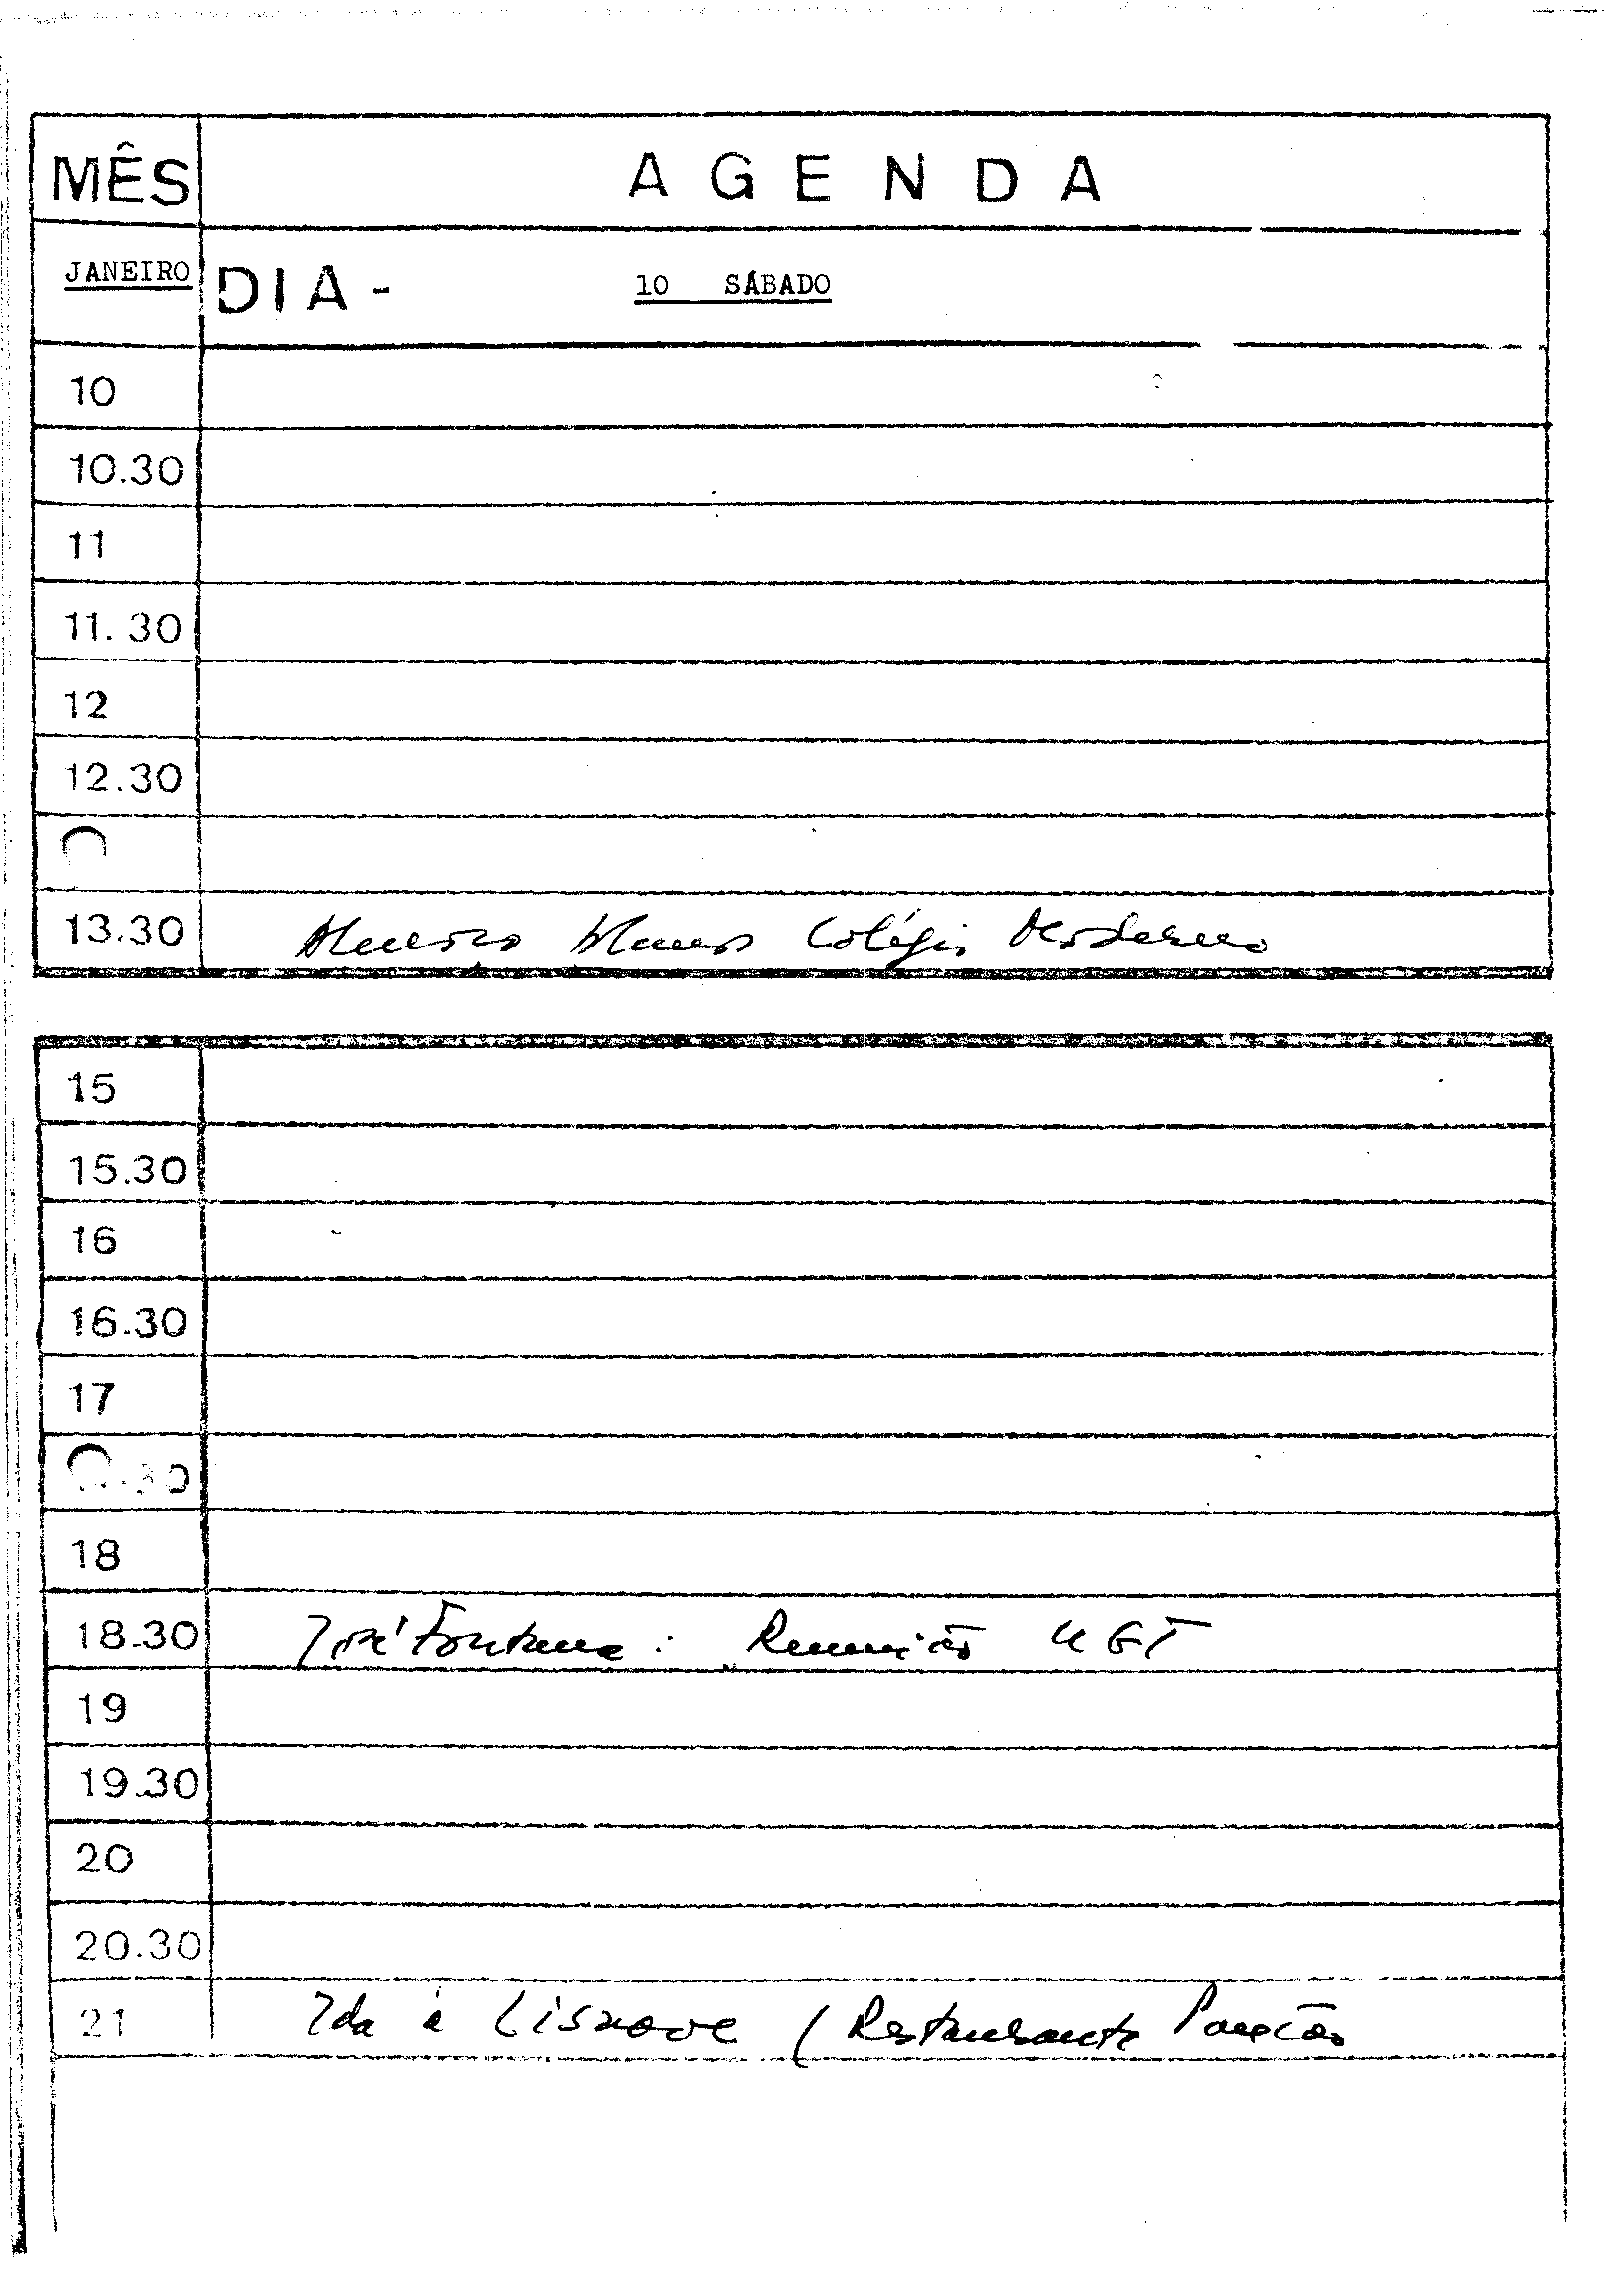 MÊS AGENDA
JANEIRO DIA - 10 SÁBADO
10
10.30
11
11.30
12
12.30
13.30 Almoço Alunos Colégio Moderno
15
15.30
16
16.30
17
.30
18
18.30 José Fontana: Reunião UGT
19
19.30
20
20.30
21 Ida à Lisnave (Restaurante